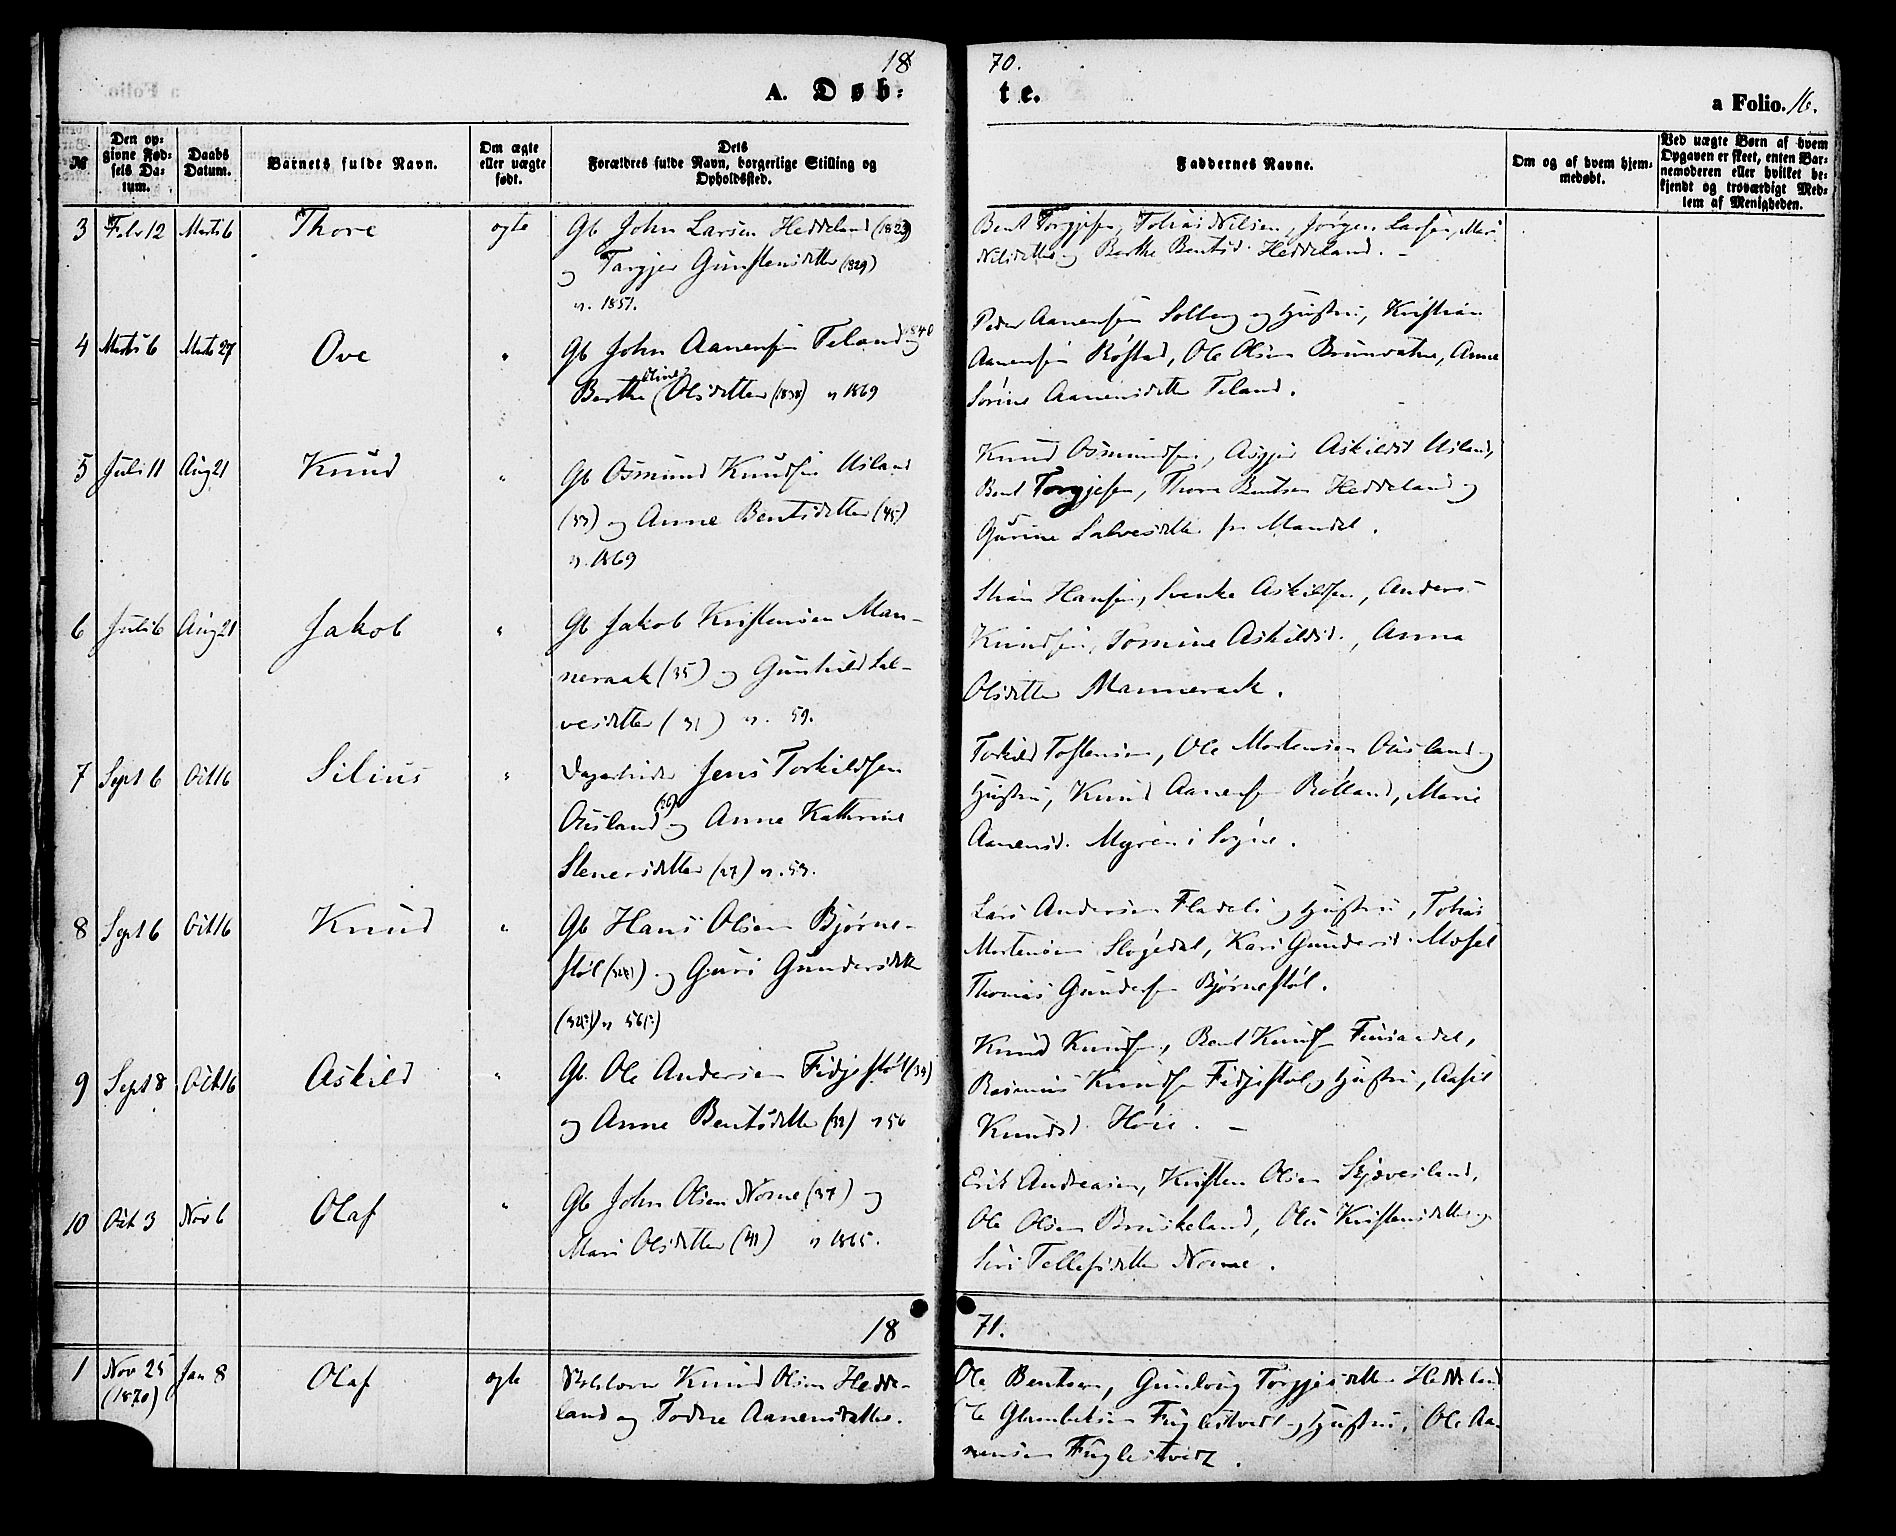 1870.
A. Døbte.
a Folio. 16.
№
Den opgivne Fødsels Datum.
Daabs Datum.
Barnets fulde Navn.
Om ægte eller uægte født.
Dets Forældres fulde Navn, borgerlige Stilling og Opholdssted.
Faddernes Navne.
Om og af hvem hjemmedøbt.
Ved uægte Børn af hvem Opgaven er skeet, enten Barnemoderen eller hvilket bekjendt og troværdigt Medlem af Menigheden.
3 Febr 12 Marts 6 Thore ægte Gb John Larsen Heddeland (1823)
og Targjer Gunstensdatter (1829)
v. 1851.
Bent Torgjesen, Tobias Nilsen, Jørgen Larsen, Mari
Nilsdatter og Berthe Bentsd. Heddeland. –
4 Marts 6 Marts 27 Ove " Gb John Aanensen Feland 1840 og
Berthe Oline Olsdatter (1838) v 1869
Peder Aanensen Solberg og Hustru, Kristian
Aanensen Røstad, Ole Olsen Brunvatne, Anne
Sørine Aanensdatter Feland.
5 Juli 11 Aug 21 Knud " Gb Osmund Knudsen Usland
(33) og Anne Bentsdatter (45)
v. 1869
Knud Osmundsen, Asgjer Askildsd Usland,
Bent Torgjesen, Thore Bentsen Heddeland og
Gurine Salvesdatter fr Mandal.
6 Juli 6 Aug 21 Jakob " Gb Jakob Kristensen Man-
neraak (35) og Gunhild Sal-
vesdatter (31) v. 59.
Hansen, Svenke Askildsen, Anders
Knudsen, Tomine Askildsd., Anna
Olsdatter Mannerack.
7 Sept 6 Oct 16 Silius " Jens Torkildsen
Ousland (26) og Anne Kathrine
Stenersdatter (27) v. 53.
Torkild Tostensen, Ole Mortensen Ousland og
Hustru, Knud Aanensen Rølland, Marie
Aanensd. Myren i Søgne.
8 Sept 6 Oct 16 Knud " Gb Hans Olsen Bjørne-
støl og Guri Gundersdatter
v 56
Lars Andersen Fladeli og Hustru, Tobias
Mortensen Støgedal, Kari Gundersd. Mosel
Thomas Gundersen Bjørnestøl.
9 Sept 8 Oct 16 Askild " Gb. Ole Andersen Fidjestøl (34)
og Anne Bentsdatter (32) v 56
Knud Knudsen, Bent Knudsen Finsandel,
Rasmus Knudsen Fidjestøl og Hustru, Aasil
Knudsd. Høie. –
10 Oct 3 Nov 6 Olaf " Gb John Olsen Nome (37) og
Mari Olsdatter (41) v 1865.
Erik Andreasen, Kristen Olsen Skjævesland,
Ole Olsen Bruskeland, Kristensdatter og
Siri Tellefsdatter Nome.
1871.
1 Nov 25 (1870) Jan 8 Olaf ægte Knud Olsen Hedde-
land og Todne Aanensdatter.
Ole Bentsen, Gunborg Torgjesdatter Heddeland
Ole Glambeksen Fuglestvedt og Hustru, Ole Aa-
nensen Fuglestvedt.